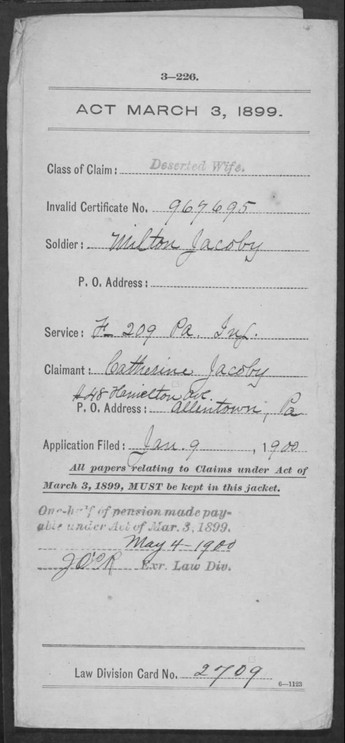 3—226.
ACT MARCH 3, 1899.
Class of Claim: Deserted Wife.
Invalid Certificate No. 967695
Soldier: Milton Jacoby
P. O. Address:
Service: F 209 Pa. Inf.
Claimant: Catherine Jacoby
P. O. Address: Allentown, Pa
Application Filed: Jan. 9, 1900
All papers relating to Claims under Act of
March 3, 1899, MUST be kept in this jacket.
One-half of pension made pay-
able under Act of Mar. 3, 1899.
May 4-1900
Exr. Law Div.
Law Division Card No. 2709
6—1123